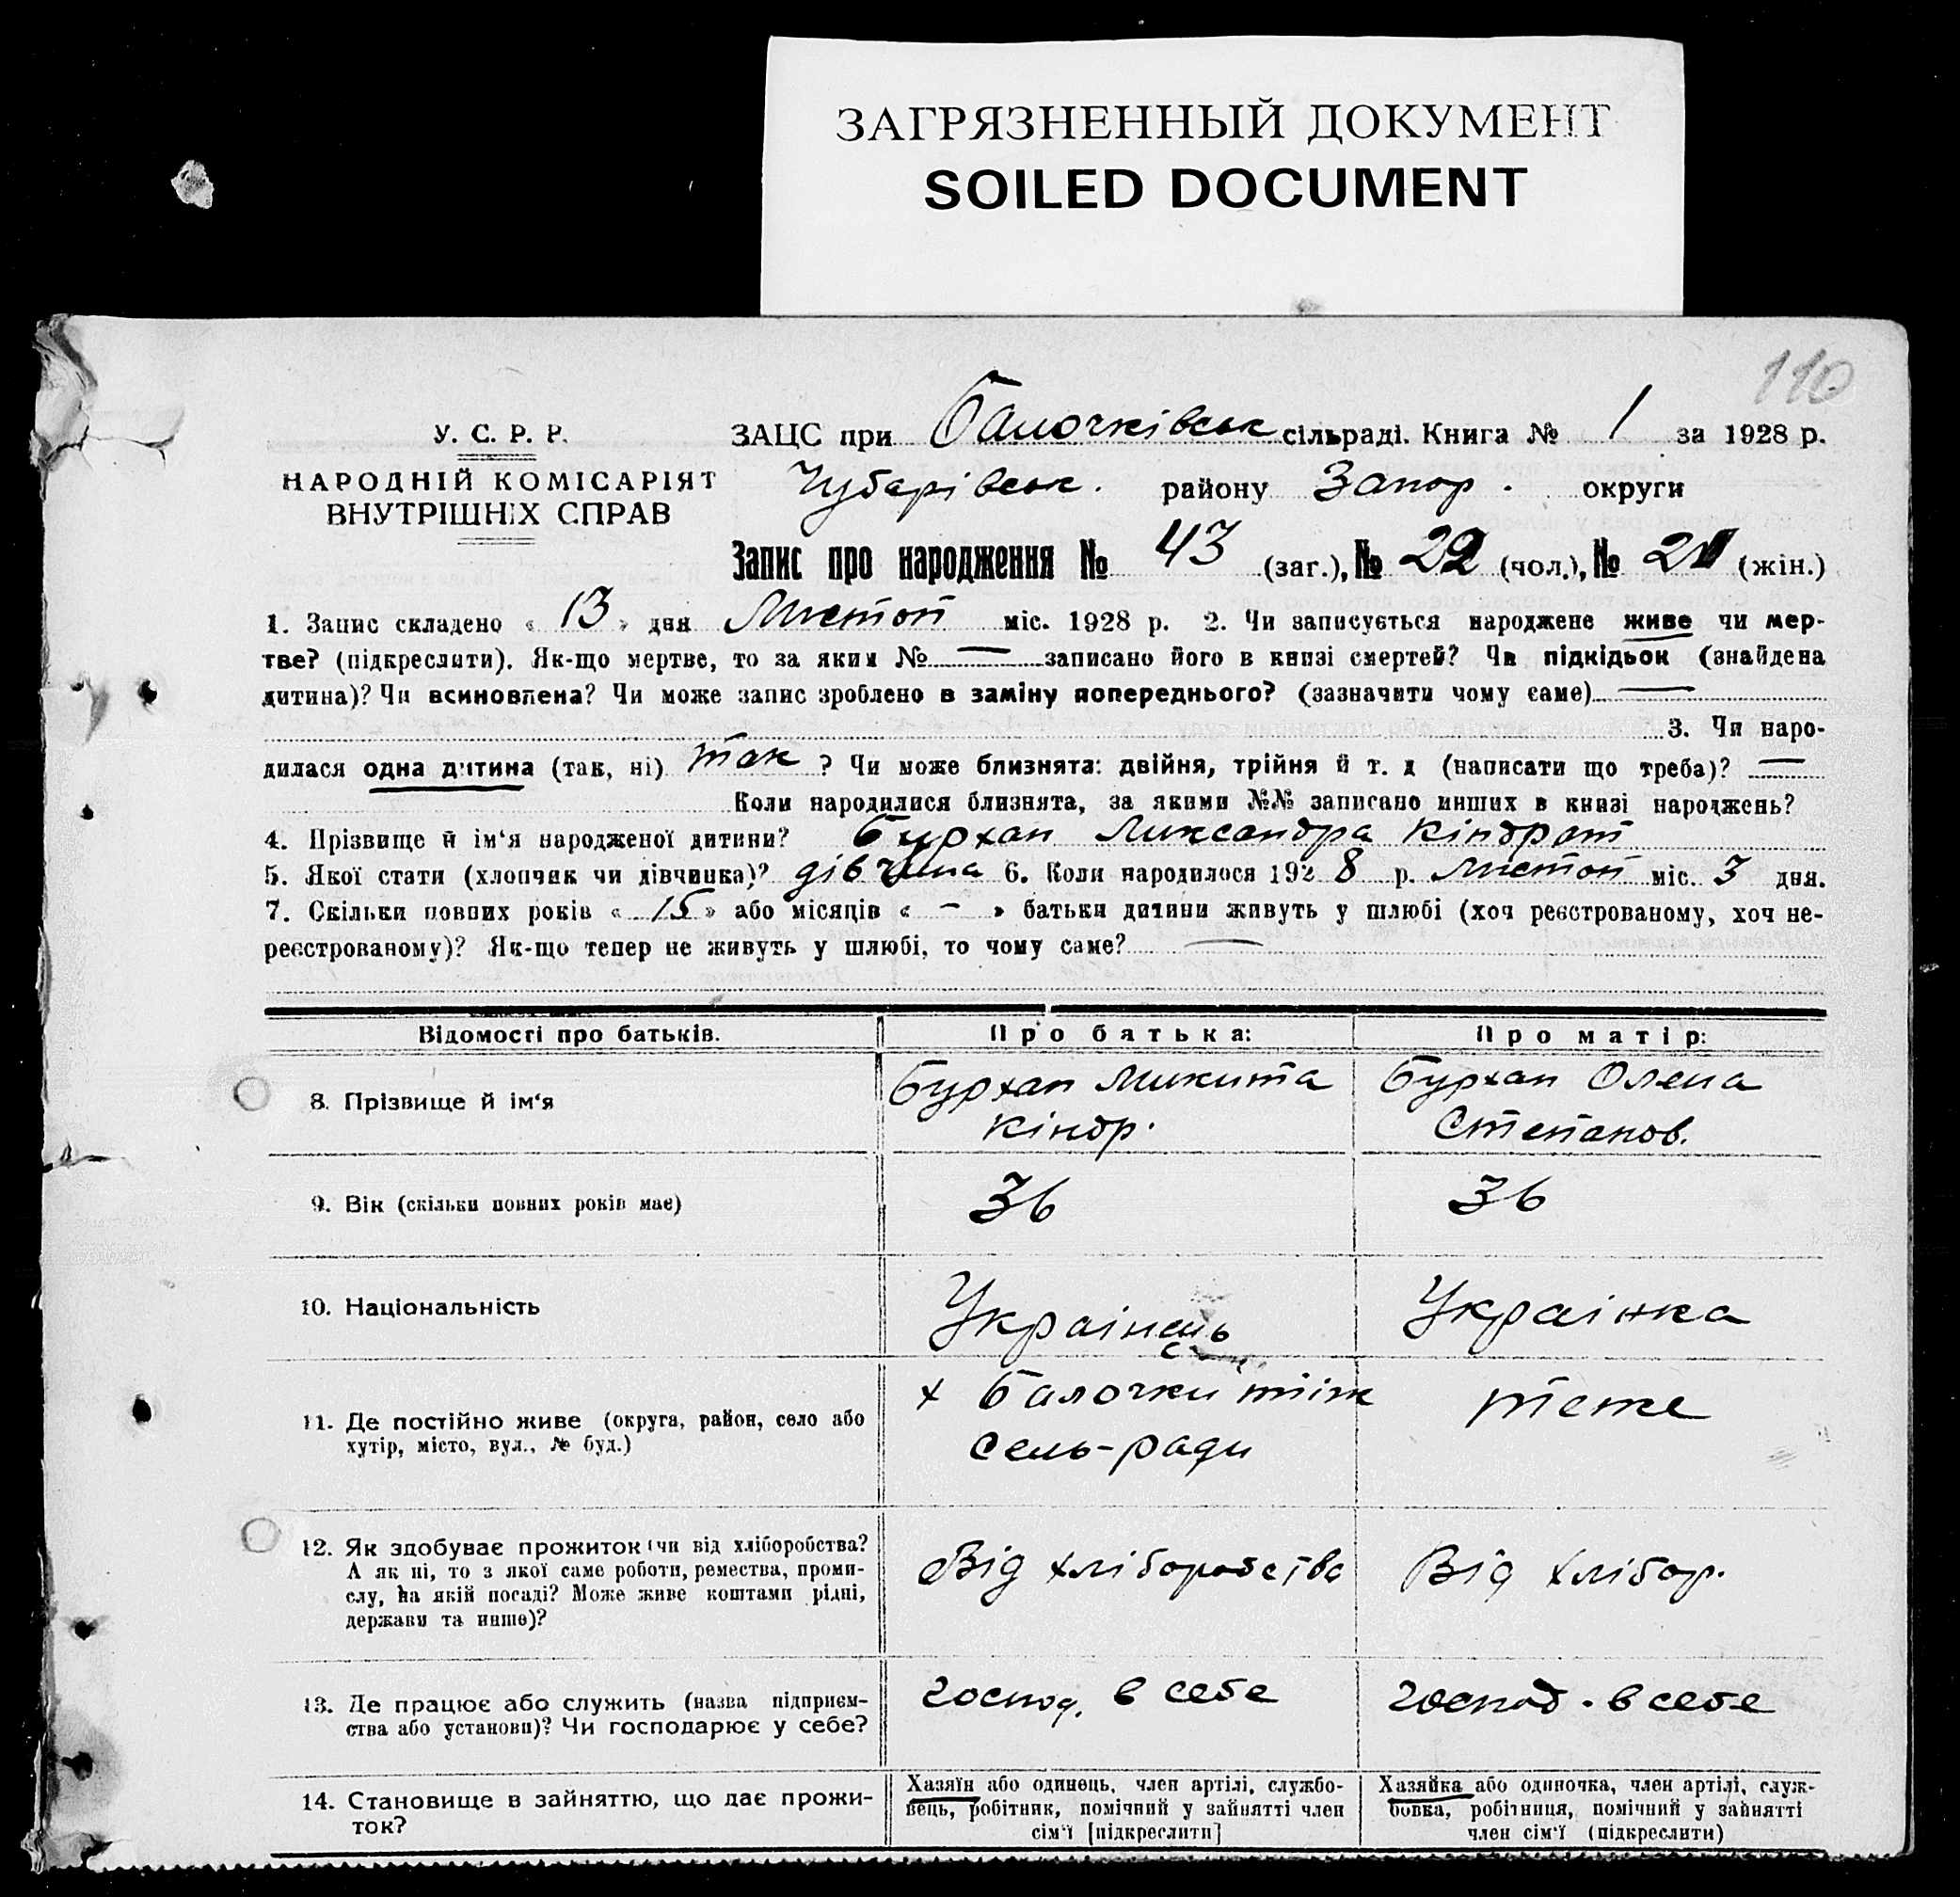 ЗАГРЯЗНЕННЫЙ ДОКУМЕНТ
SOILED DOCUMENT
110
У. С. Р. Р.
НАРОДНІЙ КОМІСАРІЯТ
ВНУТРІШНІХ СПРАВ
ЗАЦС при Балочківськ сільраді. Книга № 1 за 1928 р.
Чубарівськ. району Запор. округи
Запис про народження № 43 (заг.), № 22 (чол.), № 21 (жін.)
1. Запис складено « 13 » дня Листоп міс. 1928 р. 2. Чи записується народжене живе чи мер-
тве? (підкреслити). Як-що мертве, то за яким № — записано його в книзі смертей? Чи підкідьок (знайдена
дитина)? Чи всиновлена? Чи може запис зроблено в заміну попереднього? (зазначити чому саме) —
3. Чи наро-
дилася одна дитина (так, ні) так ? Чи може близнята: двійня, трійня й т. д (написати що треба)? —
Коли народилися близнята, за якими №№ записано инших в книзі народжень?
4. Прізвище й ім‘я народженої дитини? Бурхан Ликсандра Кіндрат
5. Якої стати (хлопчик чи дівчинка)? дівчина 6. Коли народилося 1928 р. Листоп міс. 3 дня.
7. Скільки повних років « 15 » або місяців « – » батьки дитини живуть у шлюбі (хоч реєстрованому, хоч не-
реєстрованому)? Як-що тепер не живуть у шлюбі, то чому саме? —
Відомості про батьків. Про батька: Про матір:
8. Прізвище й ім‘я Бурхан Микита Кіндр. Бурхан Олена Степанов.
9. Вік (скільки повних років має) 36 36
10. Національність Українець Українка
11. Де постійно живе (округа, район, село або
хутір, місто, вул., № буд.) х Балочки тіїж сель-ради теже
12. Як здобуває прожиток (чи від хліборобства?
А як ні, то з якої саме роботи, ремества, проми-
слу, на якій посаді? Може живе коштами рідні,
держави та инше)? Від хліборобства Від хлібор.
13. Де працює або служить (назва підприєм-
ства або установи)? Чи господарює у себе? господ. в себе господ. в себе
14. Становище в зайняттю, що дає прожи-
ток?
Хазяїн або одинець, член артілі, службо-
вець, робітник, помічний у зайнятті член
сім‘ї [підкреслити]
Хазяйка або одиночка, член артілі, служ-
бовка, робітниця, помічний у зайнятті
член сім‘ї (підкреслити)